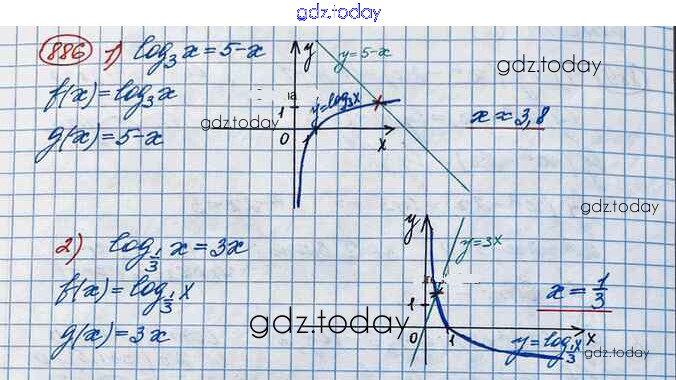 gdz.today
886 1) log₃x = 5-x
f(x) = log₃x
g(x) = 5-x
y
y=5-x
y=log₃x
1
0
1
x
gdz.today
gdz.today
x ≈ 3,8
gdz.today
2) log_{1/3} x = 3x
f(x) = log_{1/3} x
g(x) = 3x
y
y=3x
1
0
1
x
y=log_{1/3} x
x = 1/3
gdz.today
gdz.today